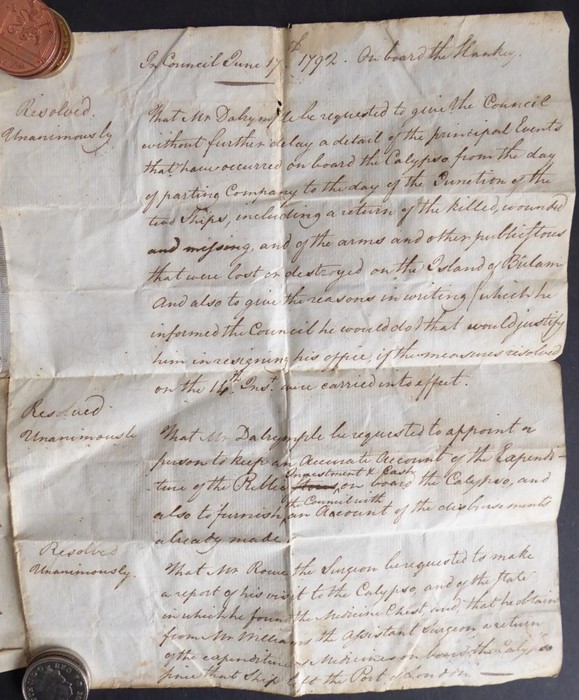 In Council June 17th 1792. On board the Hankey.
Resolved Unanimously
That Mr Dalrymple be requested to give the Council
without further delay a detail of the principal Events
that have occurred on board the Calypso from the day
of parting Company to the day of the Junction of the
two Ships, including a return of the killed, wounded
and missing, and of the arms and other public stores
that were lost or destroyed on the Island of Bulam
And also to give the reasons in writing (which he
informed the Council he would do) that would justify
him in resigning his office, if the measures resolved
on the 14th Inst. were carried into effect.
Resolved Unanimously
That Mr Dalrymple be requested to appoint a
person to keep an Accurate Account of the Expendi-
Investment & Cash
ture of the Public Stores on board the Calypso, and
the Council with
also to furnish an Account of the disbursements
already made
Resolved Unanimously.
That Mr Rowe the Surgeon be requested to make
a report of his visit to the Calypso, and of the State
in which he found the Medicine Chest and that he obtain
from Mr Williams the Assistant Surgeon a return
of the expenditure of Medicines on board the Calypso
since that Ship left the Port of London